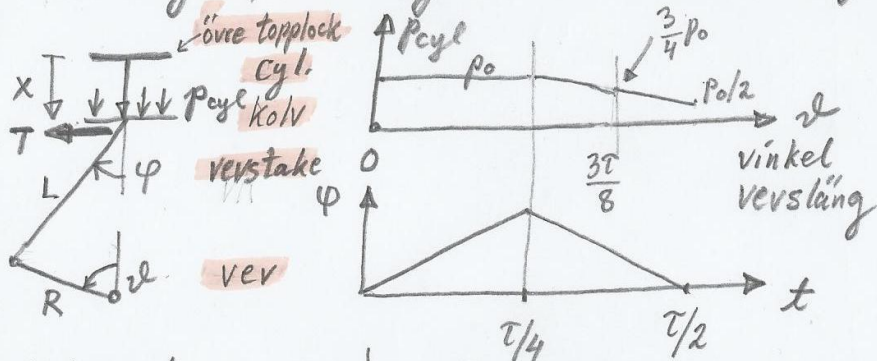 övre topplock
cyl.
X
Pcyl
kolv
T
φ
vevstake
L
R
ϑ
vev
Pcyl
p₀
3/4 p₀
p₀/2
ϑ
vinkel
vevsläng
0
3τ/8
φ
t
τ/4
τ/2